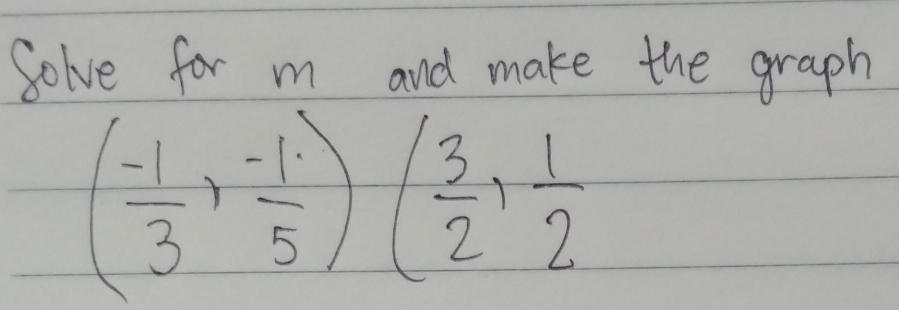 Solve for m and make the graph
(-1/3, -1/5) (3/2, 1/2